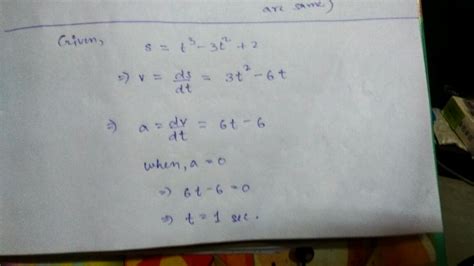 are same)
Given,
s = t³ - 3t² + 2
⇒ v = ds/dt = 3t² - 6t
⇒ a = dv/dt = 6t - 6
when, a = 0
⇒ 6t - 6 = 0
⇒ t = 1 sec.